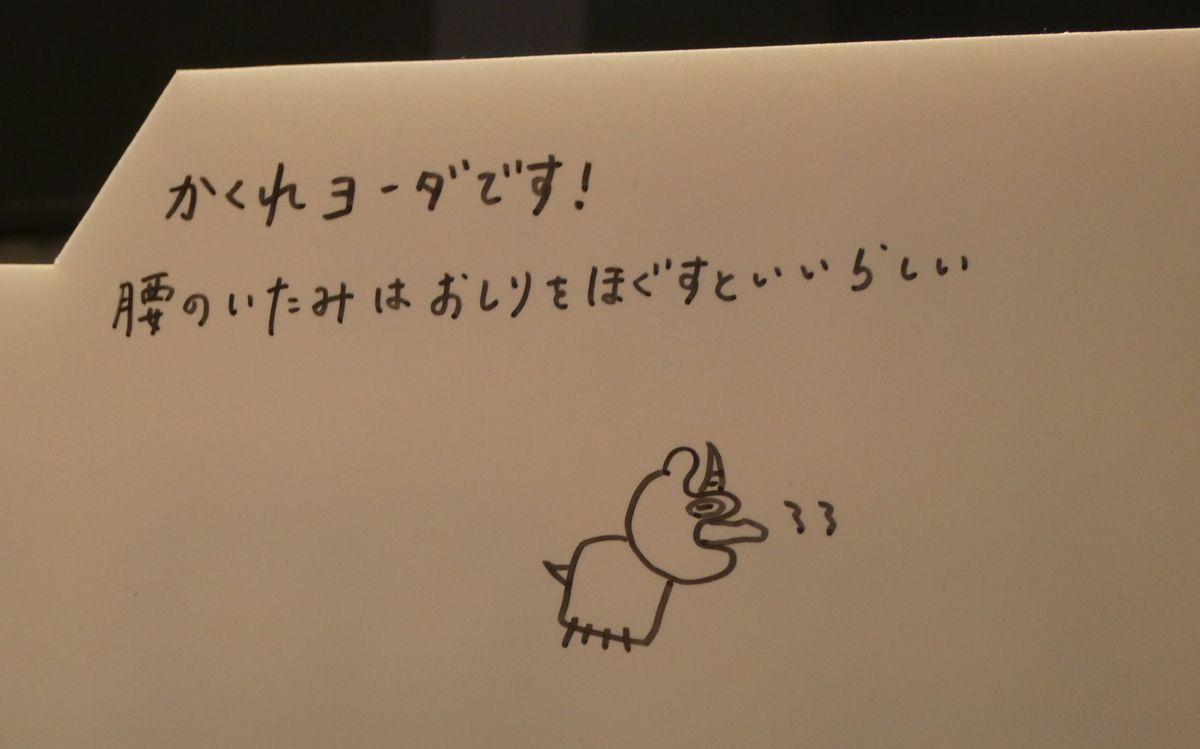 かくれヨーダです!
腰のいたみはおしりをほぐすといいらしい